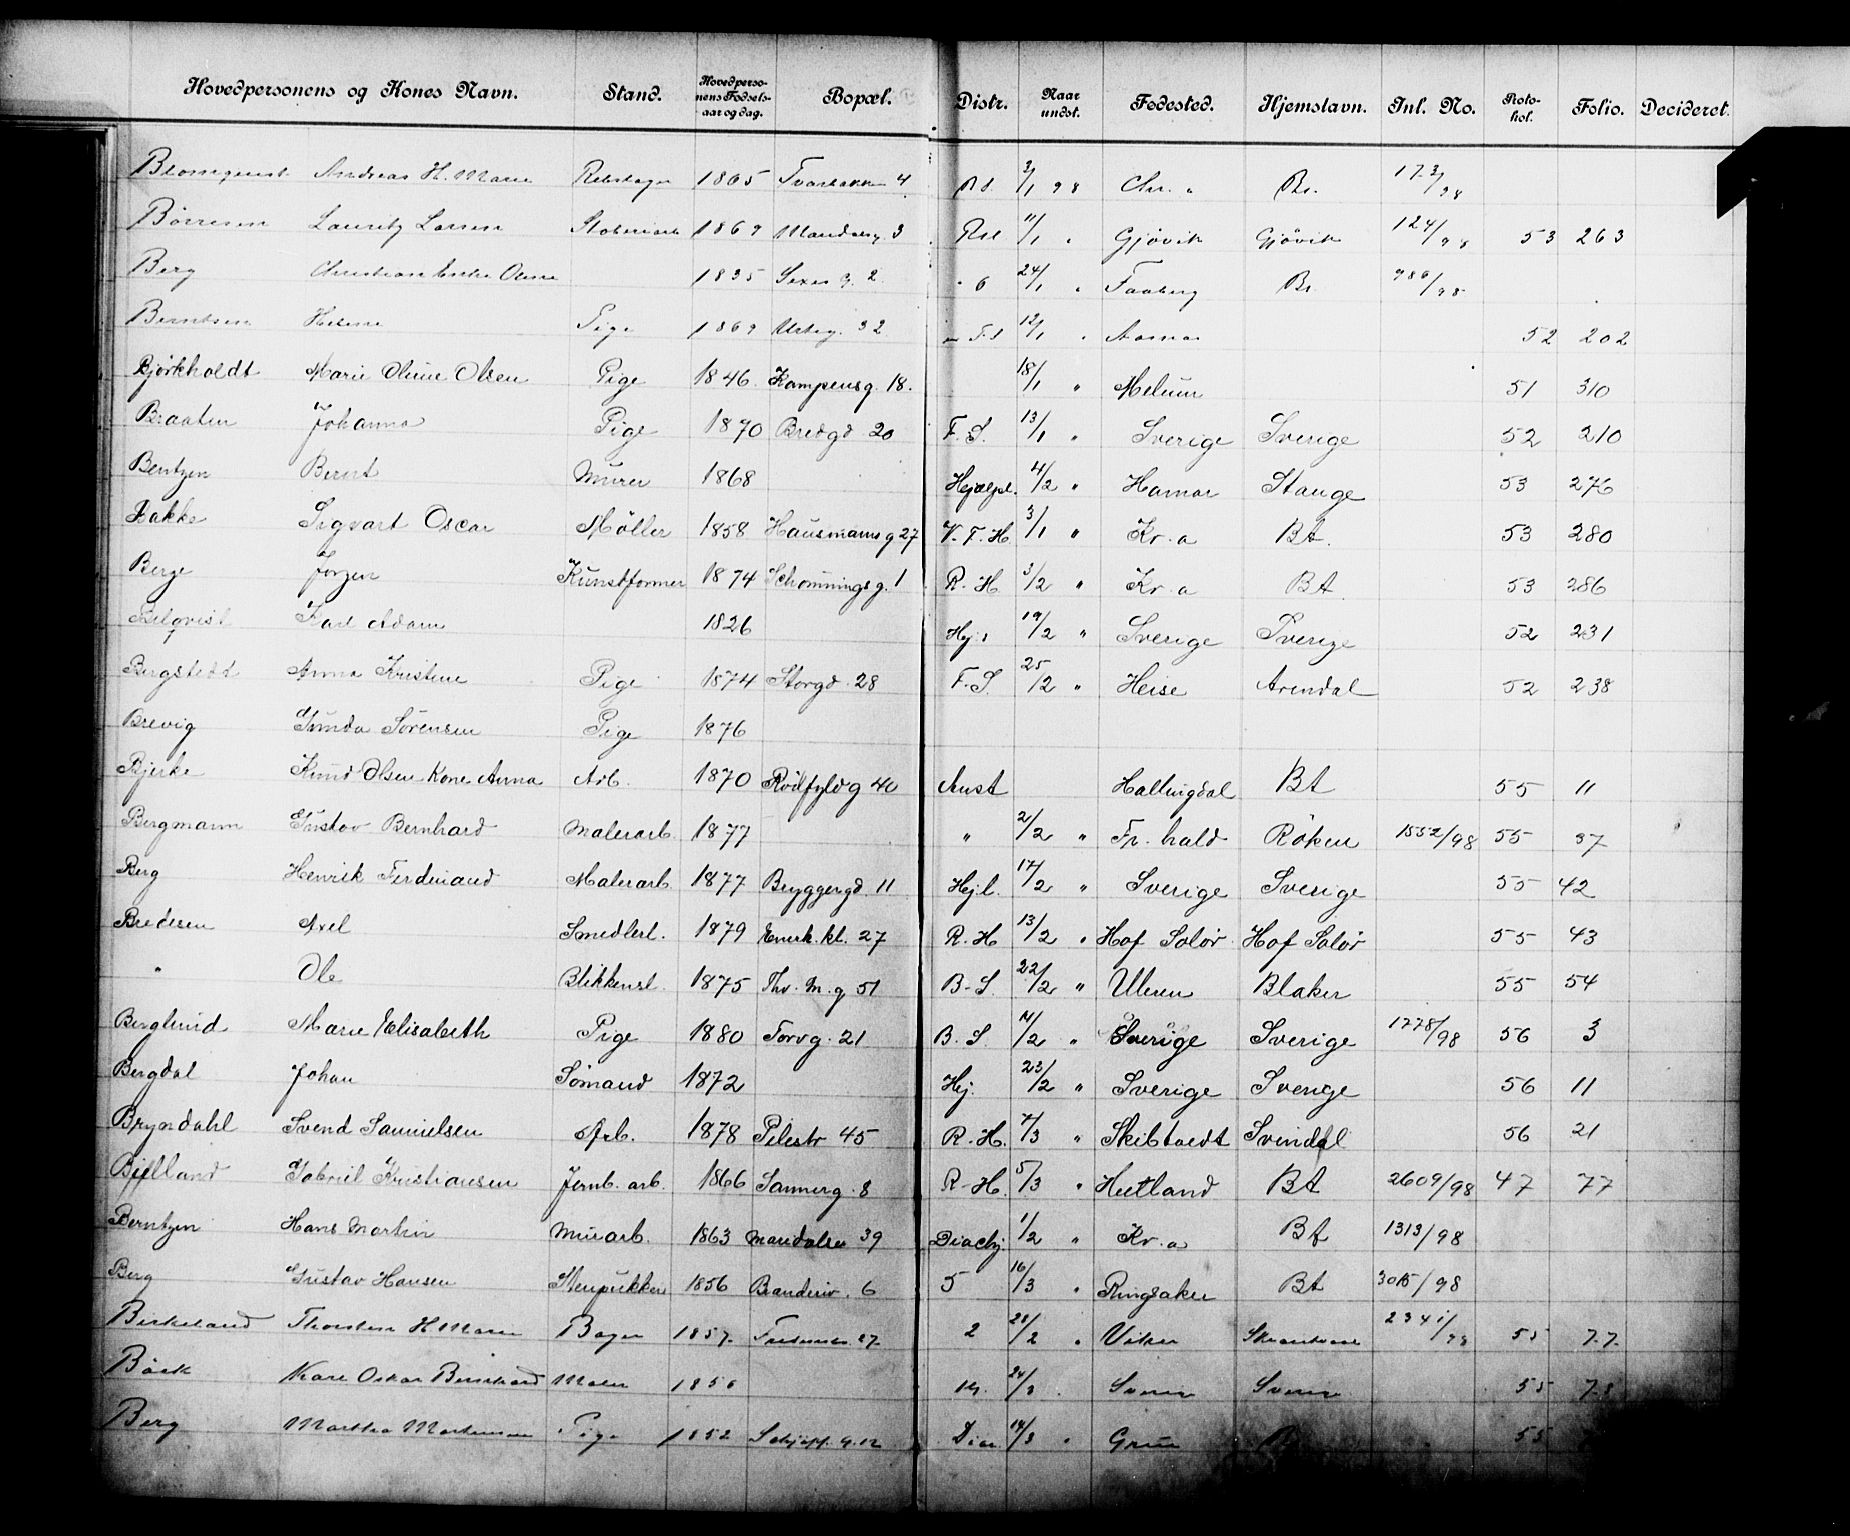 Hovedpersonens og Kones Navn. Stand. Hovedpersonens Fødselsaar og dag. Bopæl. Distr. Naar undst. Fødested. Hjemstavn. Inl. No. Protokol. Folio. Decideret.
Blomquist Andreas H. Marie 1865 4 3/1 98 Chr. " 173/98
Børresen Lauritz Larsen 1869 3 11/1 " Gjøvik Gjøvik 124/98 53 263
Berg Christian 1835 2 6 24/1 " Faaberg Bt. 986/98
Berntsen Helene Pige 1869 Urteg. 32 12/1 " 52 202
Bjørkholdt Marie Oline Olsen Pige 1846 Kampensg. 18. 18/1 " Melum 51 310
Braaten Johanna Pige 1870 Bredgd 20 F. S. 13/1 " Sverige Sverige 52 210
Bentzen Bernt Murer 1868 Hjælpl. 4/2 " Hamar Stange 53 276
Bakke Sigvart Oscar Møller 1858 Hausmannsg 27 V. F. H. 3/1 " Kr. a Bt. 53 280
Berge Jørgen Kunstformer 1874 Schouningsg. 1 R. H 3/2 " Kr. a Bt 53 286
Karl Adam 1826 Hj. 19/2 " Sverige Sverige 52 231
Bergstedt Anna Kristine Pige 1874 Storgd. 28 F. S. 25/2 " Heise Arendal 52 238
Brevig Gunda Sørensen Pige 1876
Bjerke Knud Olsen Kone Anna Arb. 1870 Rødfyldg 40 Anst Hallingdal Bt 55 11
Bergmann Gustav Bernhard Malerarb. 1877 " 2/2 " Fr. hald Røken 1552/98 55 37
Berg Henrik Ferdinand Malerarb. 1877 Bryggergd. 11 Hjl. 17/2 " Sverige Sverige 55 42
Bredesen Axel Smedlerl. 1879 Enerh. kl. 27 R. H 13/2 " Hof Solør Hof Solør 55 43
" Ole Blikkensl. 1875 Thv. M. g 51 B. S. 22/2 " Ullern Blaker 55 54
Berglund Marie Elisabeth Pige 1880 Torvg. 21 B. S. /2 " Sverige Sverige 1778/98 56 3
Bergdal Johan Sømand 1872 Hj. 23/2 " Sverige Sverige 56 11
Bryndahl Svend Samuelsen Arb. 1878 Pilestr 45 R. H. 7/3 " Skibtvedt Svindal 56 21
Bjelland Gabriel Kristiansen Jernb. arb. 1866 Sannerg. 8 R. H. 5/3 " Hetland Bt 2609/98 47 77
Berntzen Hans Martin Murarb. 1863 Maridalsv 39 Diachj. 1/2 " Kr. a Bt 1313/98
Berg Gustav Hansen Stenpukker 1856 Branderiv. 6 5 16/3 " Ringsaker Bt 3015/98
Birkeland Thorsten H Marie Bager 1857 27 2 28/2 " 2341/98 55 77
Bäck Karl Oskar Bernhard Maler 1856 24/3 55
Berg Martha Mortensen Pige 1852 12 18/3 " Grue 55